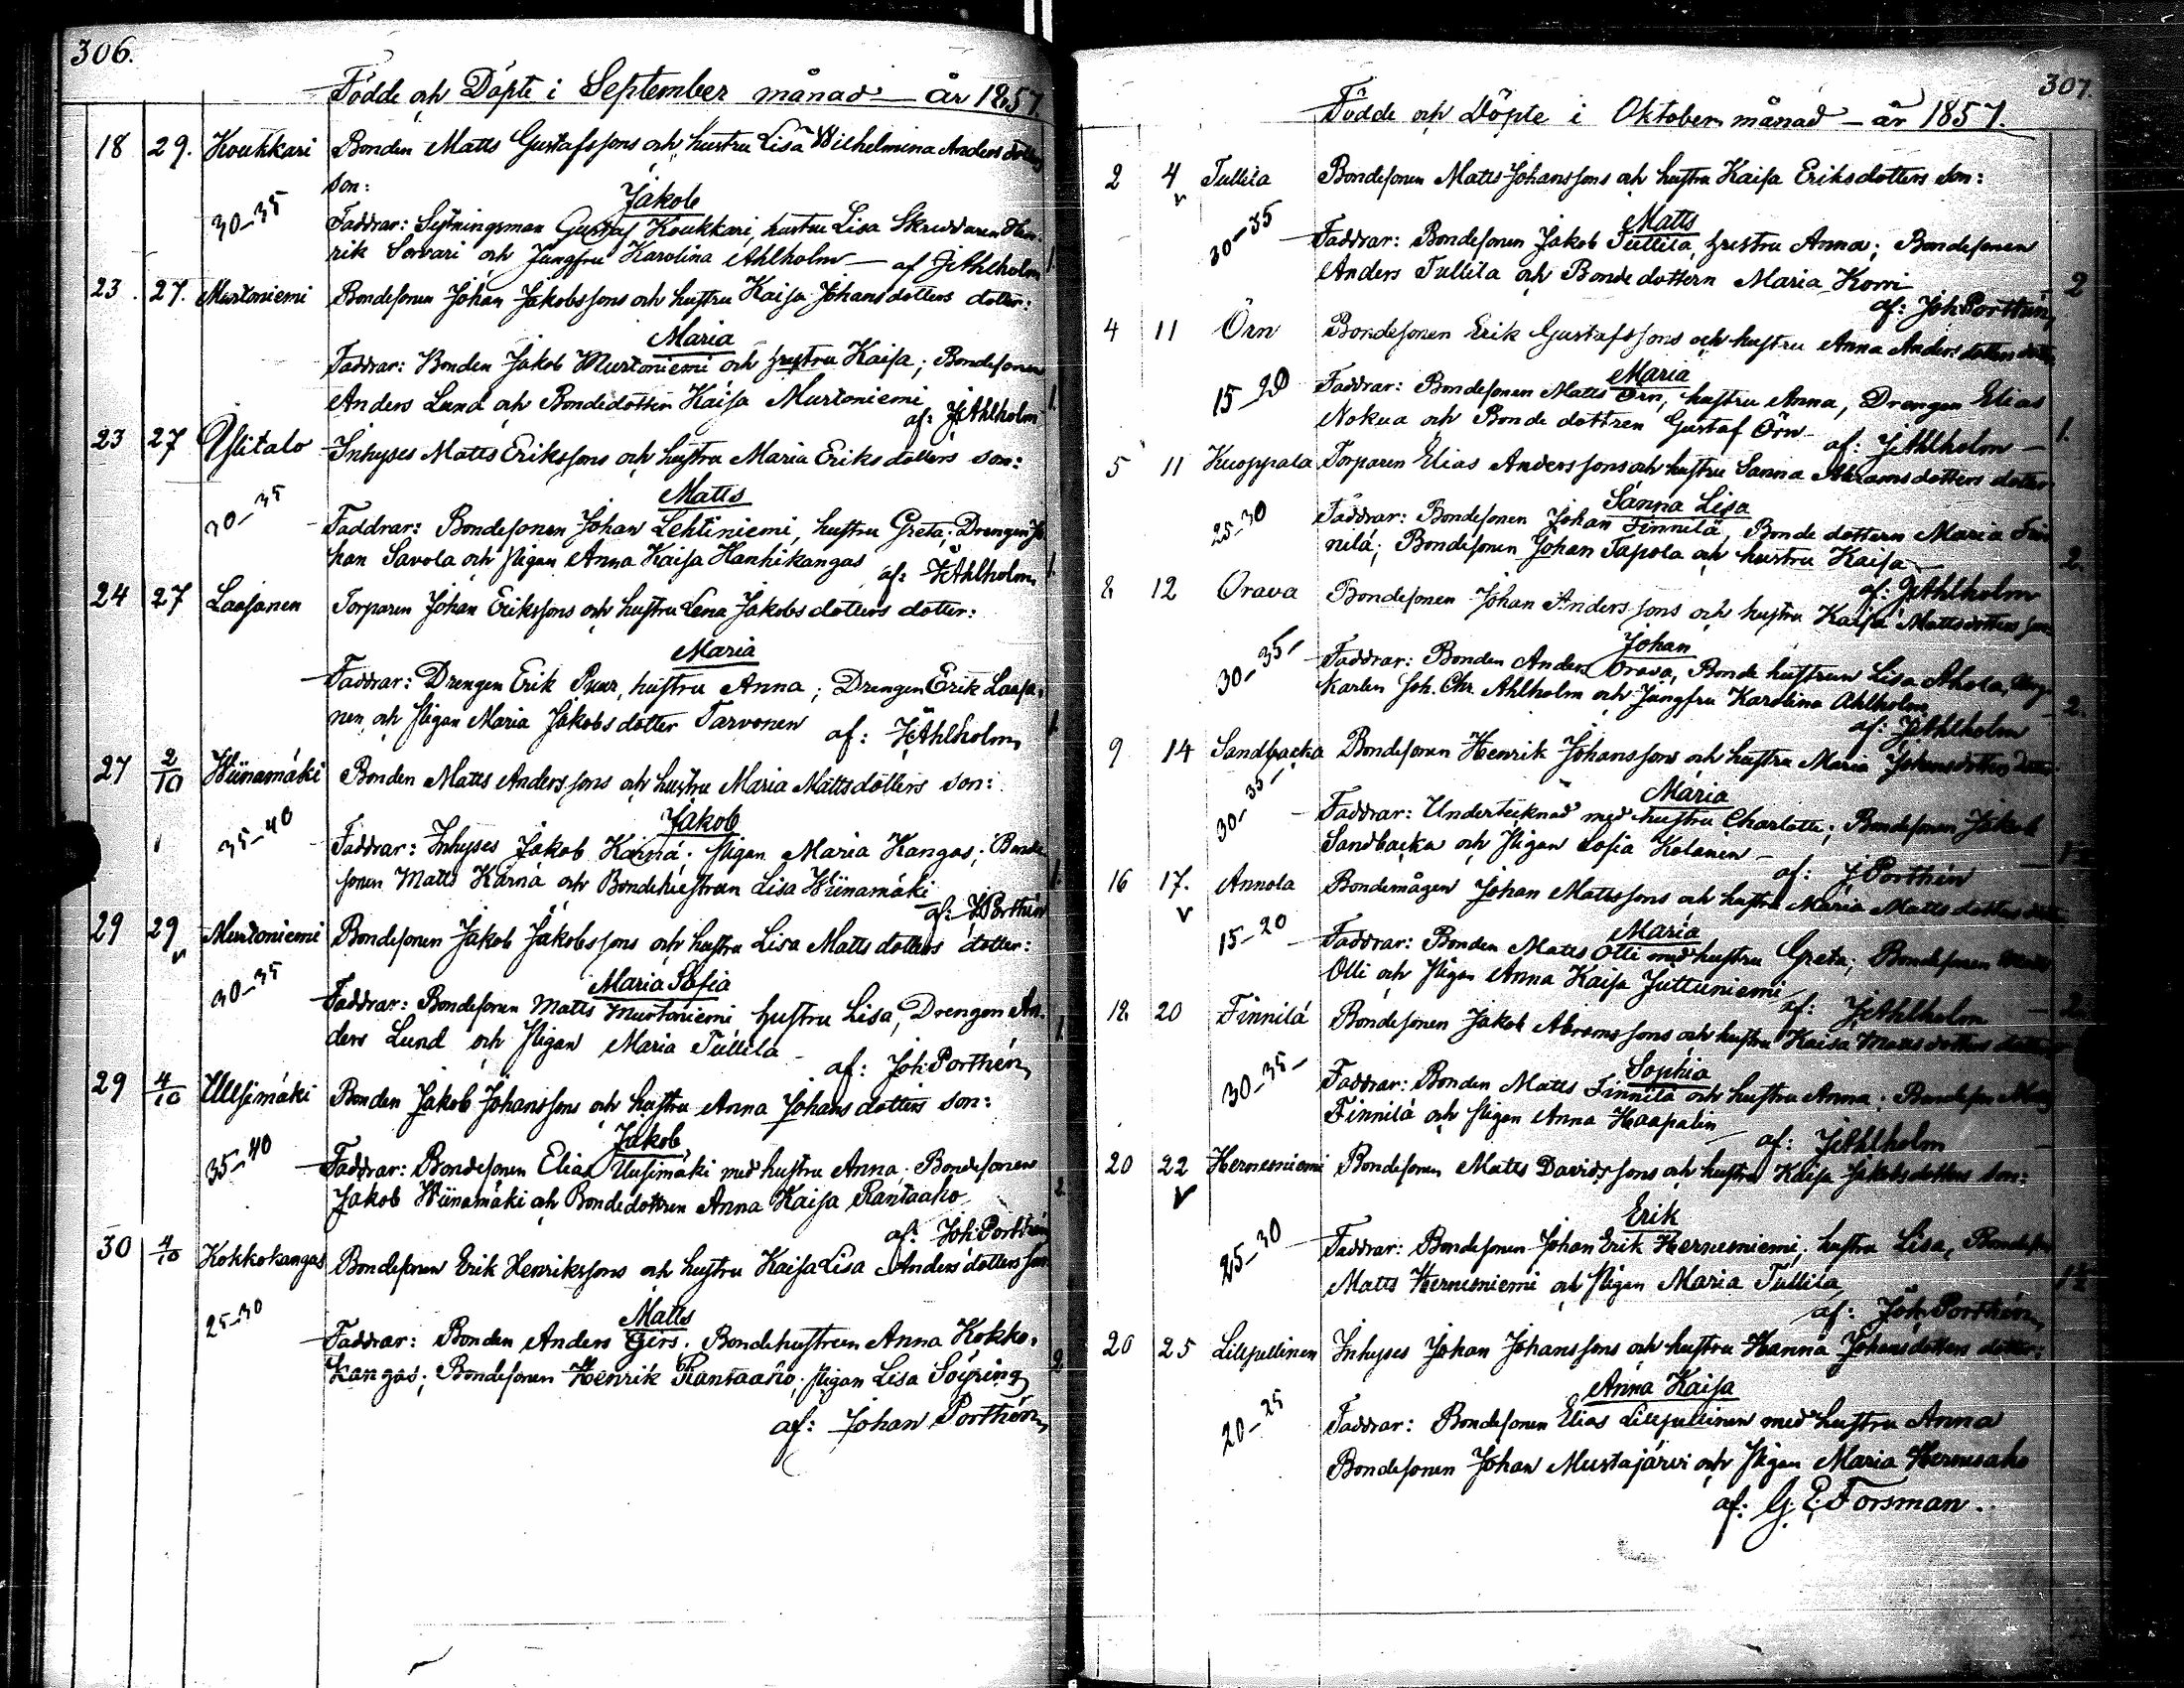 306.
Födde och Döpte i September månad – år 1857.
18 29. Koukkari Bonden Matts Gustafssons och hustru Lisa Wilhelmina Andersdotters
son:
Jakob
30–35 Faddrar: Sextningsman Gustaf Koukkari, hustru Lisa Skreddaren Hen-
rik Sorvari och Jungfru Karolina Ahlholm – af JAhlholm 1.
23. 27. Murtoniemi Bondesonen Johan Jakobssons och hustru Kaisa Johansdotters dotter:
Maria
Faddrar: Bonden Jakob Murtoniemi och hustru Kaisa; Bondesonen
Anders Lund och Bondedottern Kaisa Murtoniemi 1.
af: JAhlholm
23 27 Ylitalo Inhyses Matts Erikssons och hustru Maria Eriksdotters son:
Matts
30–35 Faddrar: Bondesonen Johan Lehtiniemi, hustru Greta; Drengen Jo
han Savola och Pigan Anna Kaisa Hanhikangas 1.
af: JAhlholm
24 27 Laajanen Torparen Johan Erikssons och hustru Lena Jakobsdotters dotter:
Maria
Faddrar: Drengen Erik Puur, hustru Anna; Drengen Erik Laaja-
nen och Pigan Maria Jakobsdotter Tarvonen af: JAhlholm 1
27 2/10 Wiinamäki Bonden Matts Anderssons och hustru Maria Mattsdotters son:
Jakob
35–40 Faddrar: Inhyses Jakob Kärnä; Pigan Maria Kangas; Bonde
sonen Matts Kärnä och Bondehustrun Lisa Wiinamäki 1.
af: JPorthén
29 29 Murtoniemi Bondesonen Jakob Jakobssons och hustru Lisa Mattsdotters dotter:
Maria Sofia
30–35 Faddrar: Bondesonen Matts Murtoniemi hustru Lisa, Drengen An-
ders Lund och Pigan Maria Tullila – 1.
af: Joh. Porthén,
29 4/10 Uusimäki Bonden Jakob Johanssons och hustru Anna Johansdotters son:
Jakob
35–40 Faddrar: Bondesonen Elias Uusimäki med hustru Anna; Bondesonen
Jakob Wiinamäki och Bondedottren Anna Kaisa Rantaaho 2
af: Joh. Porthén
30 4/10 Kokkokangas Bondesonen Erik Henrikssons och hustru Kaisa Lisa Andersdotters son
Matts
25–30 Faddrar: Bonden Anders Gers. Bondehustrun Anna Kokko-
kangas; Bondesonen Henrik Rantaaho; Pigan Lisa Söyring 2
af: Johan Porthén,
307.
Födde och Döpte i Oktober månad – år 1857.
2 4 Tullila Bondesonen Matts Johanssons och hustru Kaisa Eriksdotters son:
Matts
30–35 Faddrar: Bondesonen Jakob Tullila, hustru Anna; Bondesonen
Anders Tullila och Bondedottern Maria Korri 2
af: Joh Porthén,
4 11 Örn Bondesonen Erik Gustafssons och hustru Anna Andersdotters dotter
Maria
15–20 Faddrar: Bondesonen Matts Örn, hustru Anna, Drengen Elias
Nokua och Bonde dottren Gustaf Örn – 1.
af: JAhlholm –
5 11 Kuoppala Torparen Elias Anderssons och hustru Sanna Abramsdotters dotter
Sanna Lisa
25–30 Faddrar: Bondesonen Johan Finnilä, Bonde dottern Maria Fin
nilä; Bondesonen Johan Tapola och hustru Kaisa – 2.
af: JAhlholm
8 12 Orava Bondesonen Johan Anderssons och hustru Kaisa Mattsdotters son
Johan
30–35– Faddrar: Bonden Anders Orava, Bonde hustrun Lisa Ahola, Ung-
karlen Joh. Chr. Ahlholm och Jungfru Karolina Ahlholm 2.
af: JAhlholm
9 14 Sandbacka Bondesonen Henrik Johanssons och hustru Maria Johansdotters dotter
Maria
30–35– Faddrar: Undertecknad med hustru Charlotte; Bondesonen Jakob
Sandbacka och Pigan Sofia Kolanen –
af: JPorthén
16 17. Annola Bondemågen Johan Mattssons och hustru Maria Mattsdotters
Maria
15–20 Faddrar: Bonden Matts Olli med hustru Greta; Bondesonen Matts
Olli och Pigan Anna Kaisa Juttuniemi 2
af: JAhlholm
18 20 Finnilä Bondesonen Jakob Abramssons och hustru Kaisa Mattsdotters dotter
Sophia
30–35– Faddrar: Bonden Matts Finnilä och hustru Anna; Bondeson
Finnilä och Pigan Anna Haapalin
af: JAhlholm
20 22 Hernesniemi Bondesonen Matts Davidssons och hustru Kaisa Jakobsdotters son:
Erik
25–30 Faddrar: Bondesonen Johan Erik Hernesniemi, hustru Lisa, Bondeson
Matts Hernesniemi och Pigan Maria Tullila,
af: Joh. Porthén,
20 25 Liljullinen Inhyses Johan Johanssons och hustru Hanna Johansdotters dotter:
Anna Kaisa
20–25 Faddrar: Bondesonen Elias Liljullinen med hustru Anna
Bondesonen Johan Mustajärvi och Pigan Maria Hernesaho
af: G. E. Forsman.